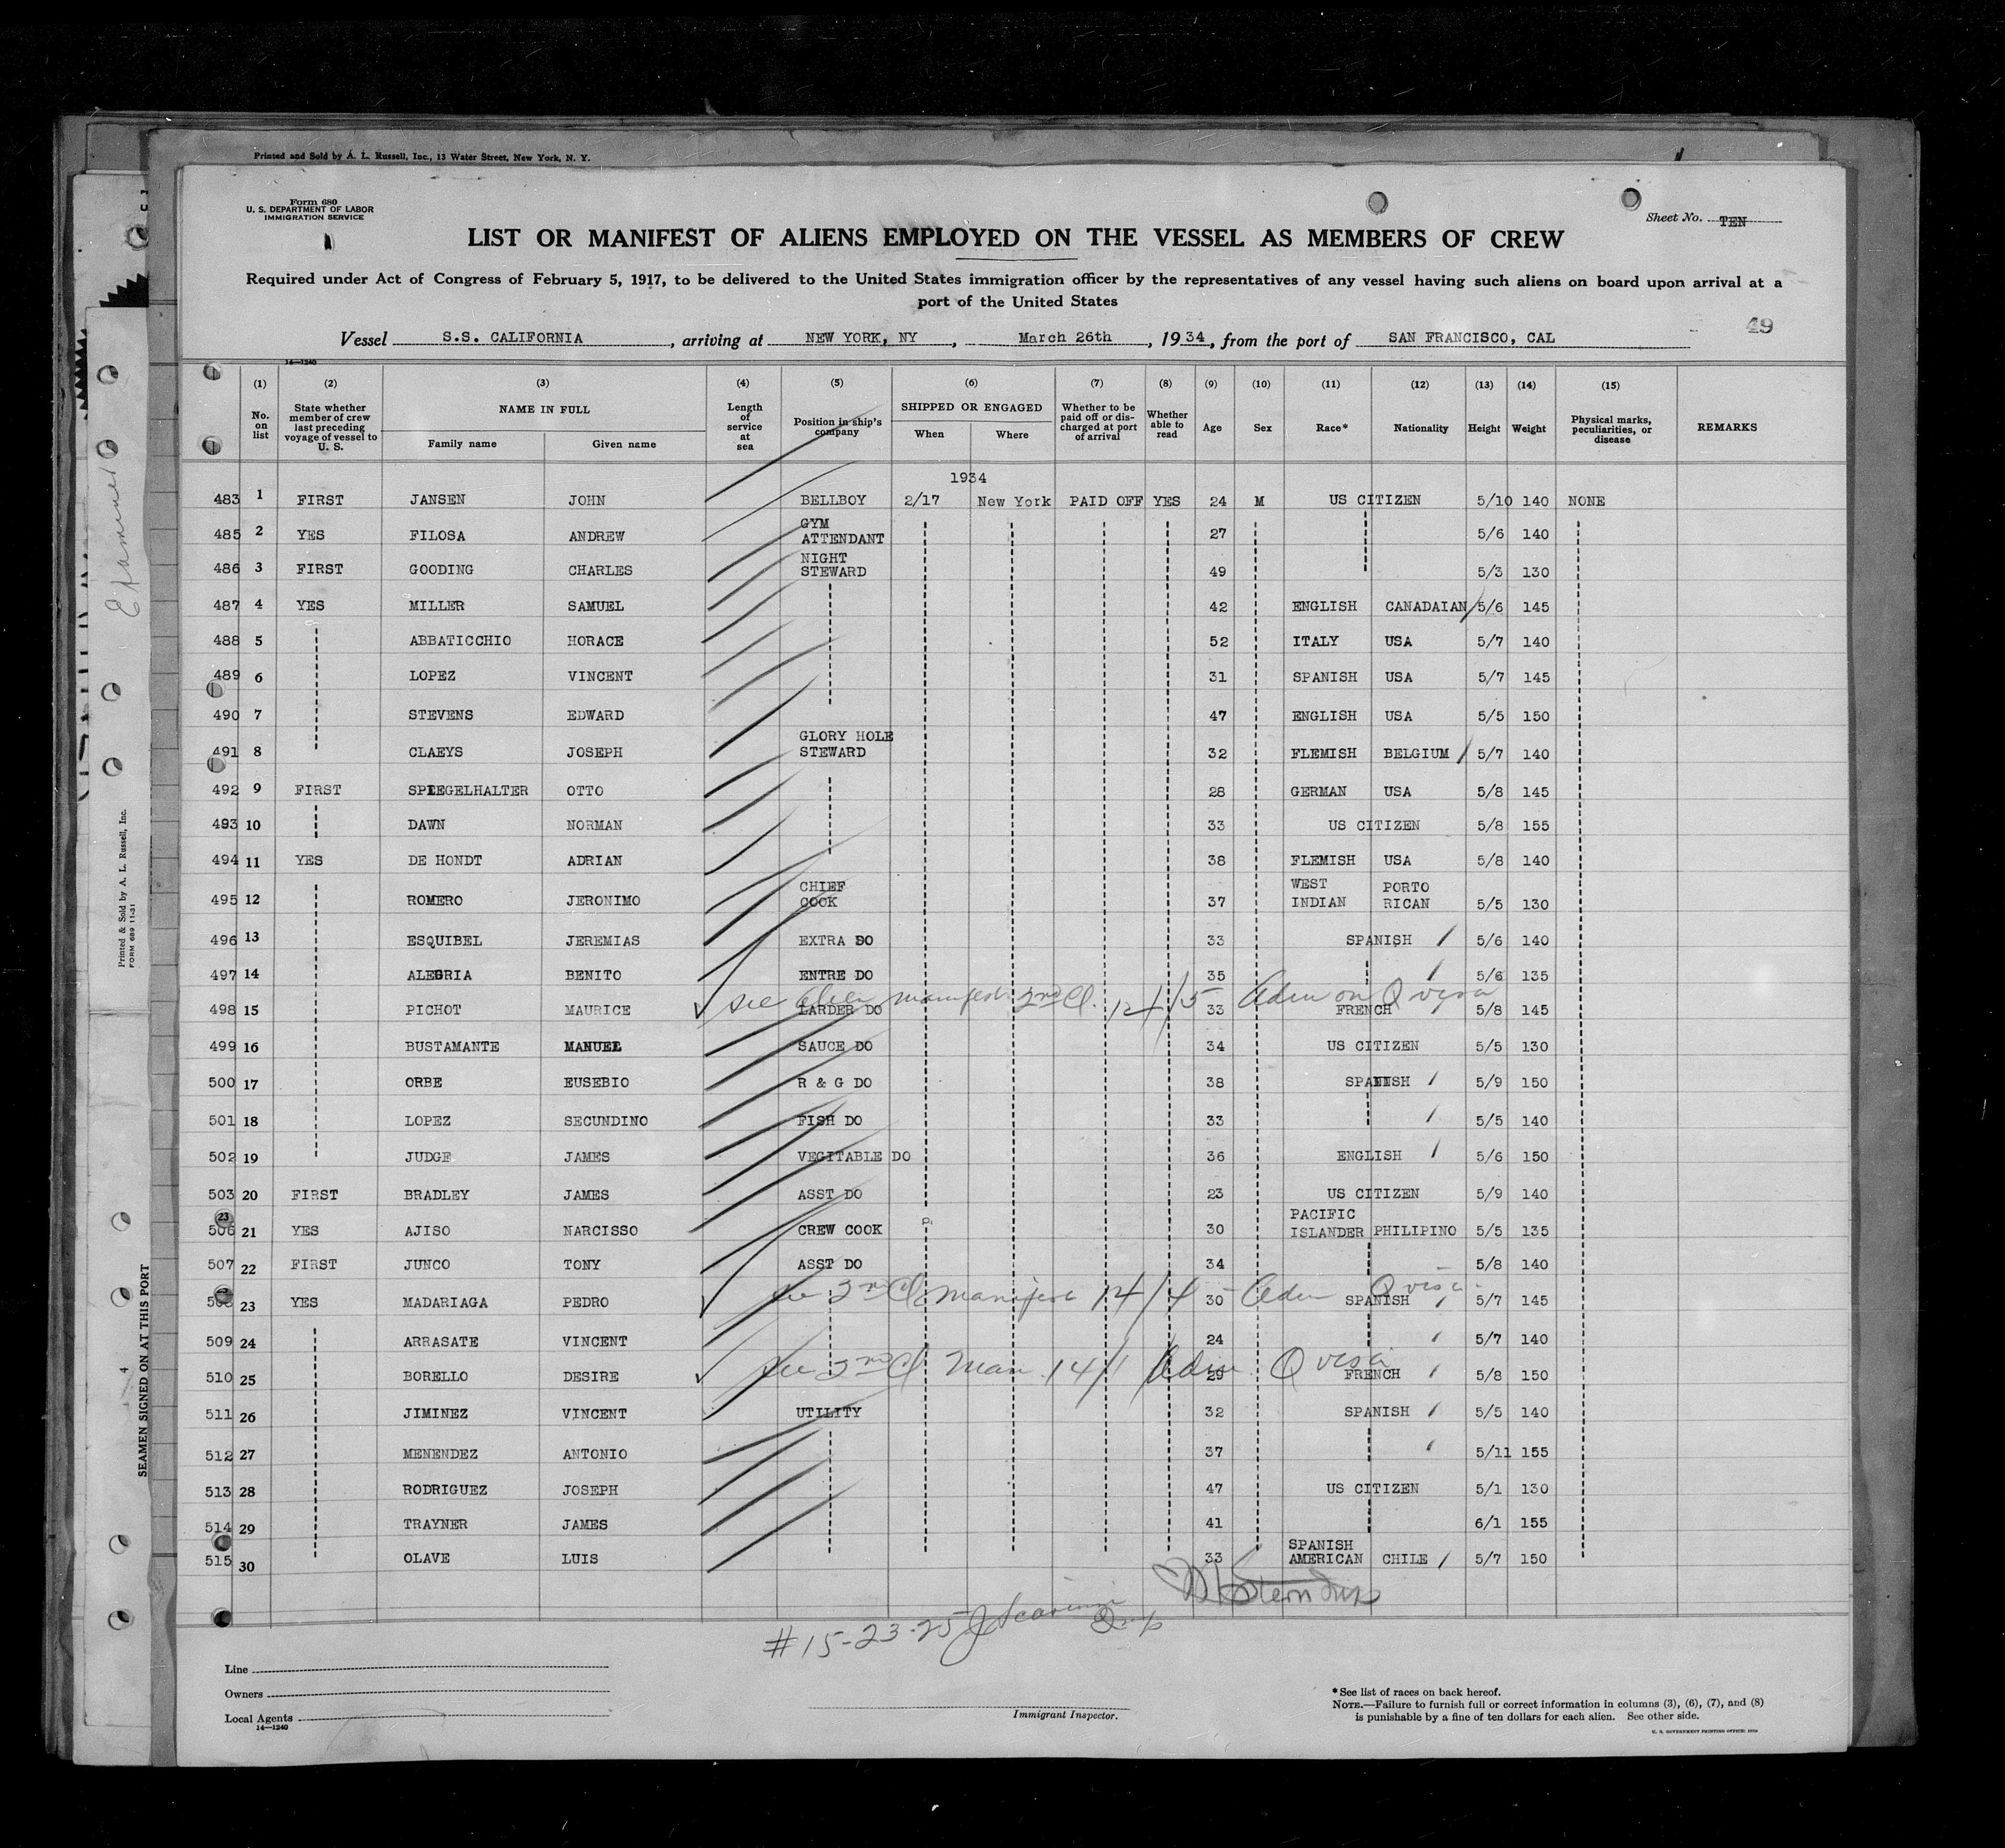 Printed and Sold by A. L. Russell, Inc., 13 Water Street, New York, N. Y.
Form 680
U. S. DEPARTMENT OF LABOR
IMMIGRATION SERVICE
Sheet No. TEN
LIST OR MANIFEST OF ALIENS EMPLOYED ON THE VESSEL AS MEMBERS OF CREW
Required under Act of Congress of February 5, 1917, to be delivered to the United States immigration officer by the representatives of any vessel having such aliens on board upon arrival at a
port of the United States
49
Vessel S.S. CALIFORNIA, arriving at NEW YORK, NY, March 26th, 1934, from the port of SAN FRANCISCO, CAL
14—1240
(1) (2) (3) (4) (5) (6) (7) (8) (9) (10) (11) (12) (13) (14) (15)
No. on list State whether member of crew last preceding voyage of vessel to U. S. NAME IN FULL Family name Given name Length of service at sea Position in ship's company SHIPPED OR ENGAGED When Where Whether to be paid off or discharged at port of arrival Whether able to read Age Sex Race* Nationality Height Weight Physical marks, peculiarities, or disease REMARKS
1934
483 1 FIRST JANSEN JOHN BELLBOY 2/17 New York PAID OFF YES 24 M US CITIZEN 5/10 140 NONE
485 2 YES FILOSA ANDREW GYM ATTENDANT 27 5/6 140
486 3 FIRST GOODING CHARLES NIGHT STEWARD 49 5/3 130
487 4 YES MILLER SAMUEL 42 ENGLISH CANADAIAN 5/6 145
488 5 ABBATICCHIO HORACE 52 ITALY USA 5/7 140
489 6 LOPEZ VINCENT 31 SPANISH USA 5/7 145
490 7 STEVENS EDWARD 47 ENGLISH USA 5/5 150
491 8 CLAEYS JOSEPH GLORY HOLE STEWARD 32 FLEMISH BELGIUM 5/7 140
492 9 FIRST SPIEGELHALTER OTTO 28 GERMAN USA 5/8 145
493 10 DAWN NORMAN 33 US CITIZEN 5/8 155
494 11 YES DE HONDT ADRIAN 38 FLEMISH USA 5/8 140
495 12 ROMERO JERONIMO CHIEF COOK 37 WEST INDIAN PORTO RICAN 5/5 130
496 13 ESQUIBEL JEREMIAS EXTRA DO 33 SPANISH 5/6 140
497 14 ALEGRIA BENITO ENTRE DO 35 5/6 135
see Alien manifest 2nd Cl. 12/15 Adm on Q visa
498 15 PICHOT MAURICE LARDER DO 33 FRENCH 5/8 145
499 16 BUSTAMANTE MANUEL SAUCE DO 34 US CITIZEN 5/5 130
500 17 ORBE EUSEBIO R & G DO 38 SPANISH 5/9 150
501 18 LOPEZ SECUNDINO FISH DO 33 5/5 140
502 19 JUDGE JAMES VEGITABLE DO 36 ENGLISH 5/6 150
503 20 FIRST BRADLEY JAMES ASST DO 23 US CITIZEN 5/9 140
506 21 YES AJISO NARCISSO CREW COOK 30 PACIFIC ISLANDER PHILIPINO 5/5 135
507 22 FIRST JUNCO TONY ASST DO 34 5/8 140
see 2nd Cl manifest 14/4 - Adm Q visa
23 YES MADARIAGA PEDRO 30 SPANISH 5/7 145
509 24 ARRASATE VINCENT 24 5/7 140
see 2nd Cl Man. 14/1 Adm Q visa
510 25 BORELLO DESIRE 29 FRENCH 5/8 150
511 26 JIMINEZ VINCENT UTILITY 32 SPANISH 5/5 140
512 27 MENENDEZ ANTONIO 37 5/11 155
513 28 RODRIGUEZ JOSEPH 47 US CITIZEN 5/1 130
514 29 TRAYNER JAMES 41 6/1 155
515 30 OLAVE LUIS 33 SPANISH AMERICAN CHILE 5/7 150
#15-23-25
Line
Owners
Local Agents
14—1240
Immigrant Inspector.
*See list of races on back hereof.
NOTE.—Failure to furnish full or correct information in columns (3), (6), (7), and (8)
is punishable by a fine of ten dollars for each alien. See other side.
U. S. GOVERNMENT PRINTING OFFICE:
Examined
Printed & Sold by A. L. Russell, Inc.
FORM 689 11-31
SEAMEN SIGNED ON AT THIS PORT
4